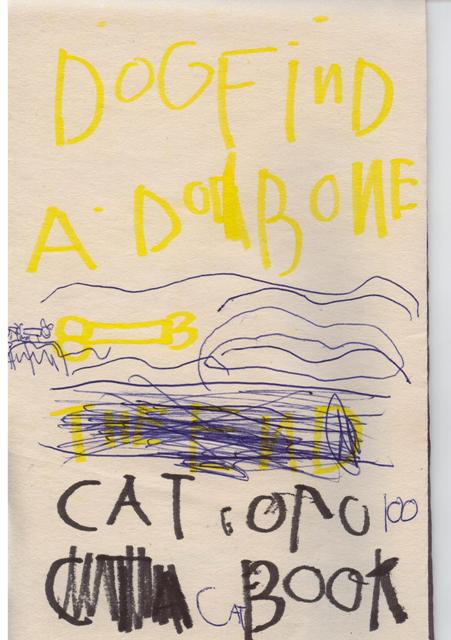 DOG FinD
A DO BONE
THE END
CAT GOPO 100
CAT BOOK